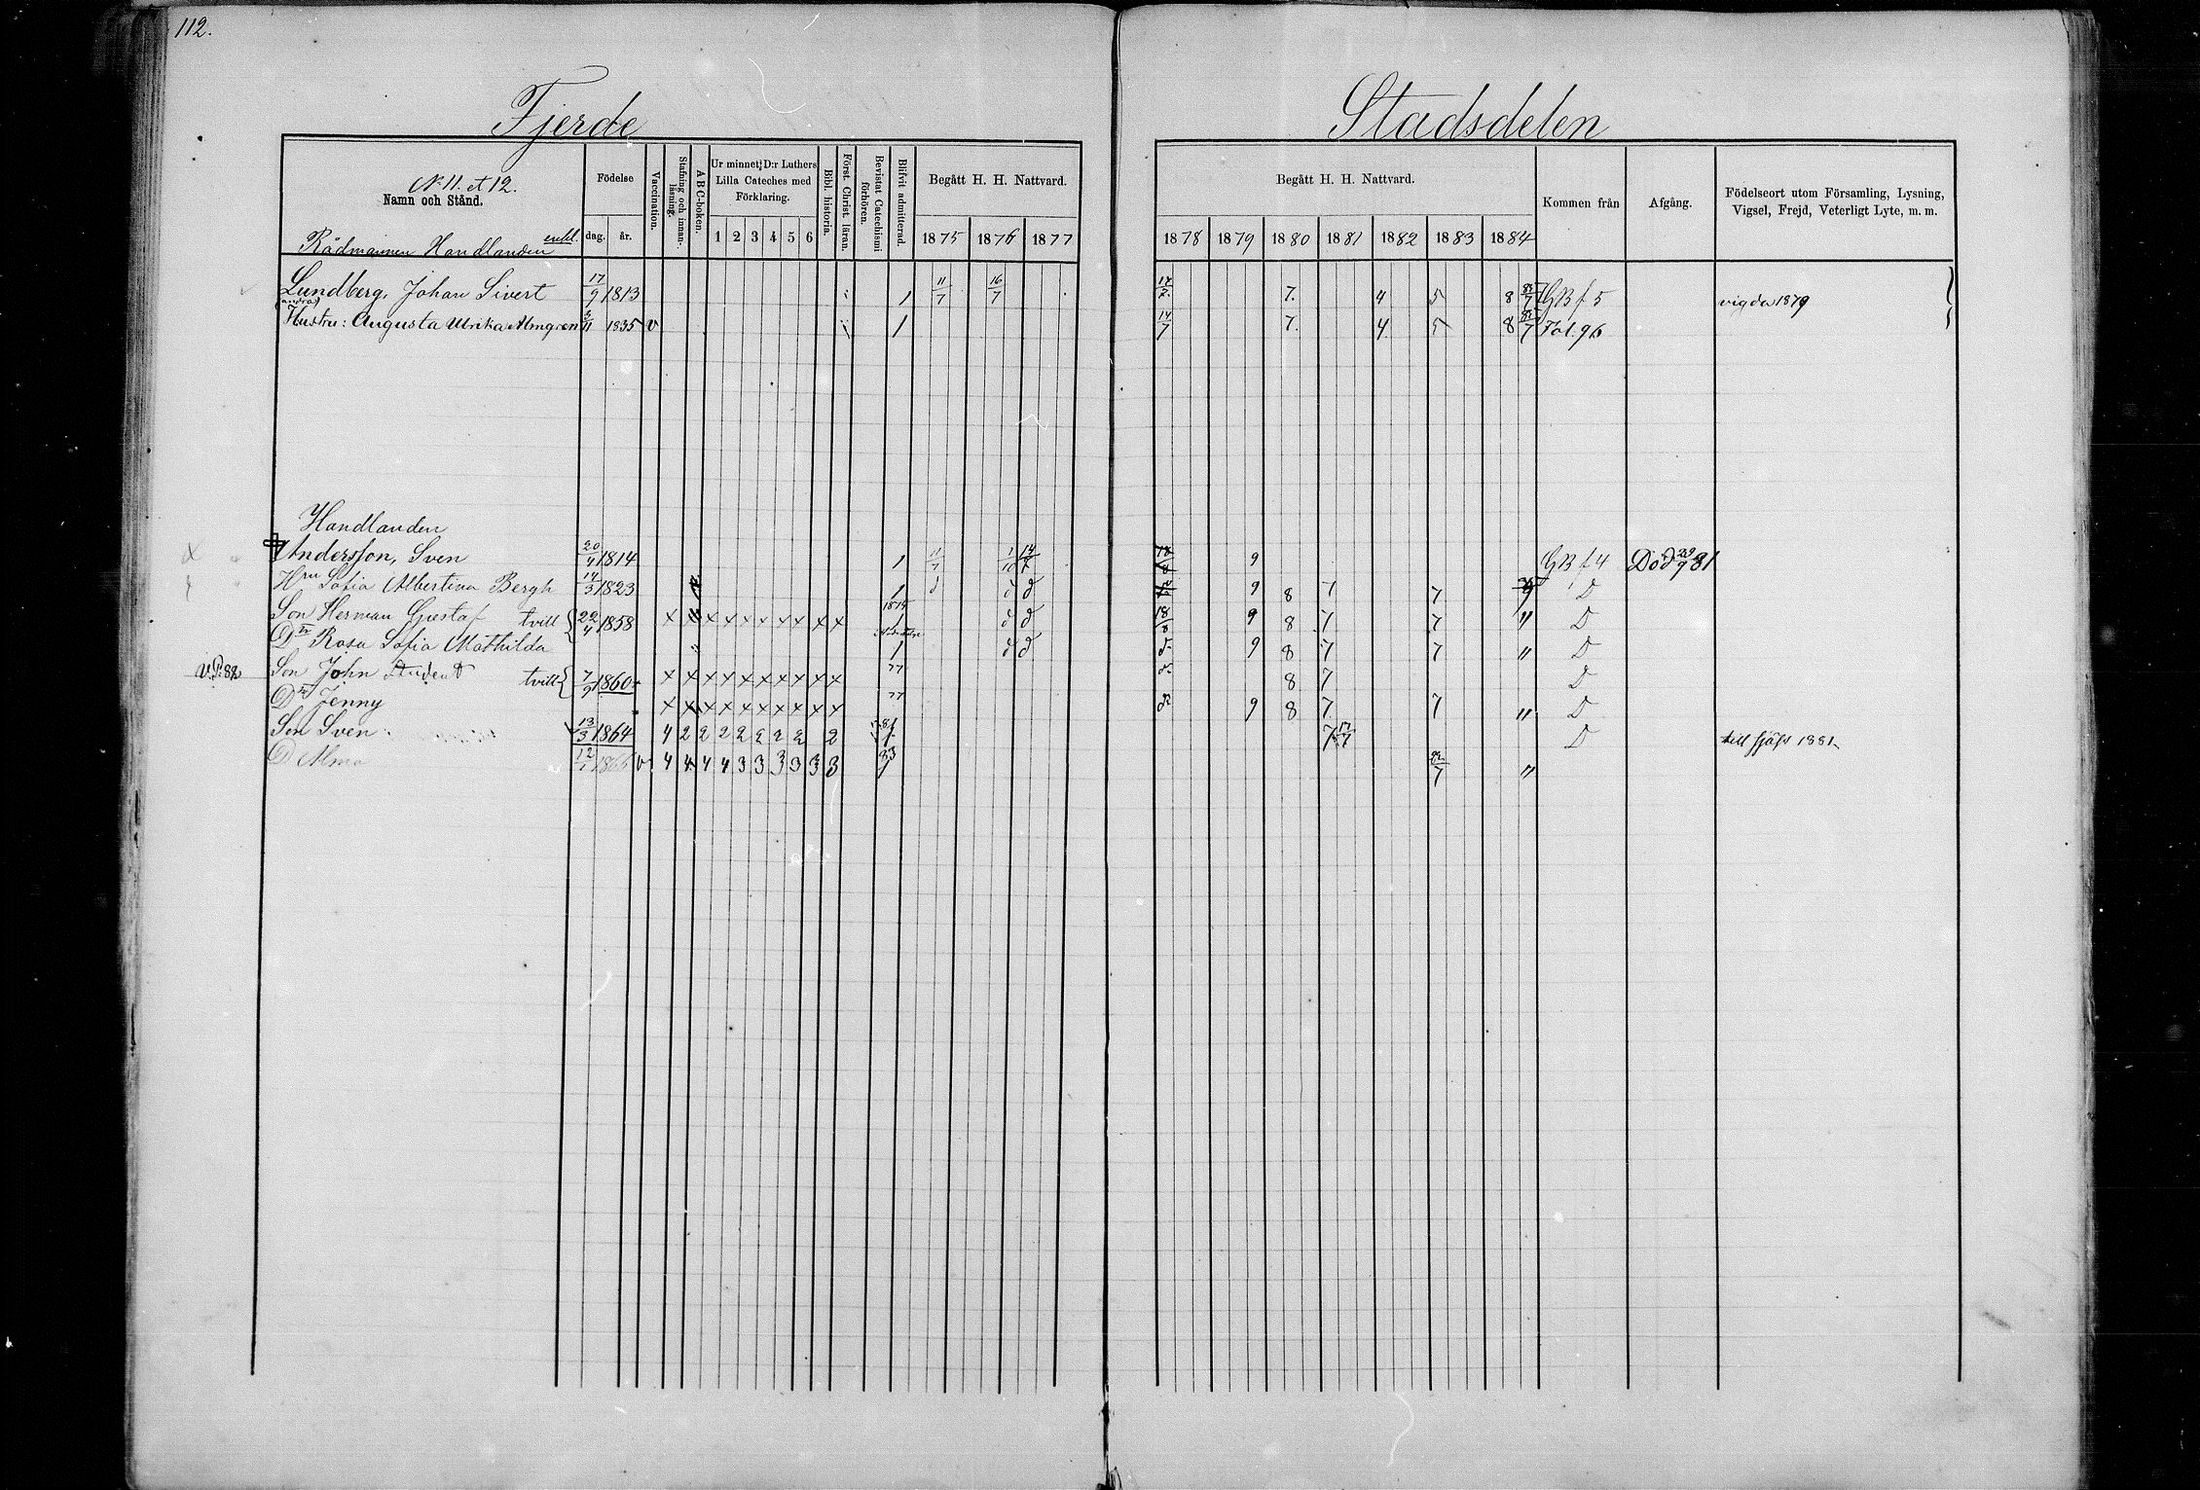 112.
Fjerde Stadsdelen
No 11. et 12.
Namn och Stånd.
Födelse
dag. år.
Vaccination.
Stafning och innan-läsning.
A B C-boken.
Ur minnet D:r Luthers
Lilla Cateches med
Förklaring.
1 2 3 4 5 6
Bibl. historia.
Först. Christ. läran.
Bevistat Catechismi förhören.
Blifvit admitterad.
Begått H. H. Nattvard.
1875 1876 1877
Begått H. H. Nattvard.
1878 1879 1880 1881 1882 1883 1884
Kommen från
Afgång.
Födelseort utom Församling, Lysning,
Vigsel, Frejd, Veterligt Lyte, m. m.
Rådmannen Handlanden enkl.
Lundberg, Johan Sivert 17/9 1813 1 11/7 16/7 17/7 7. 4 5 8 GB f 5 vigda 1879
(andra)
Hustru: Augusta Ulrika Almgren 3/11 1835 v 1 14/7 7. 4. 5 8 Fol. 96
Handlanden
Andersson, Sven 20/4 1814 1 11/7 1/10 14/7 9 GB f 4 Död 29/9 81
Hru Sofia Albertina Bergh 14/3 1823 1 d d d 9 8 7 7 D
Son Herman Gustaf tvill 22/4 1858 x x x x x x x x x x 1875 1 d d 18/8 9 8 7 7 " D
Dr Rosa Sofia Mathilda 1 d d d 9 8 7 7 " D
V.P. 82 Son John Student tvill 7/9 1860 x x x x x x x x x x 77 d 8 7 D
Dr Jenny x x x x x x x x x x 77 d 9 8 7 7 " D
Son Sven 13/3 1864 4 2 2 2 2 2 2 2 2 81 7 17/7 D till sjöfs 1881
D Alma 1866 v 4 4 4 4 3 3 3 3 3 3 83 7 "